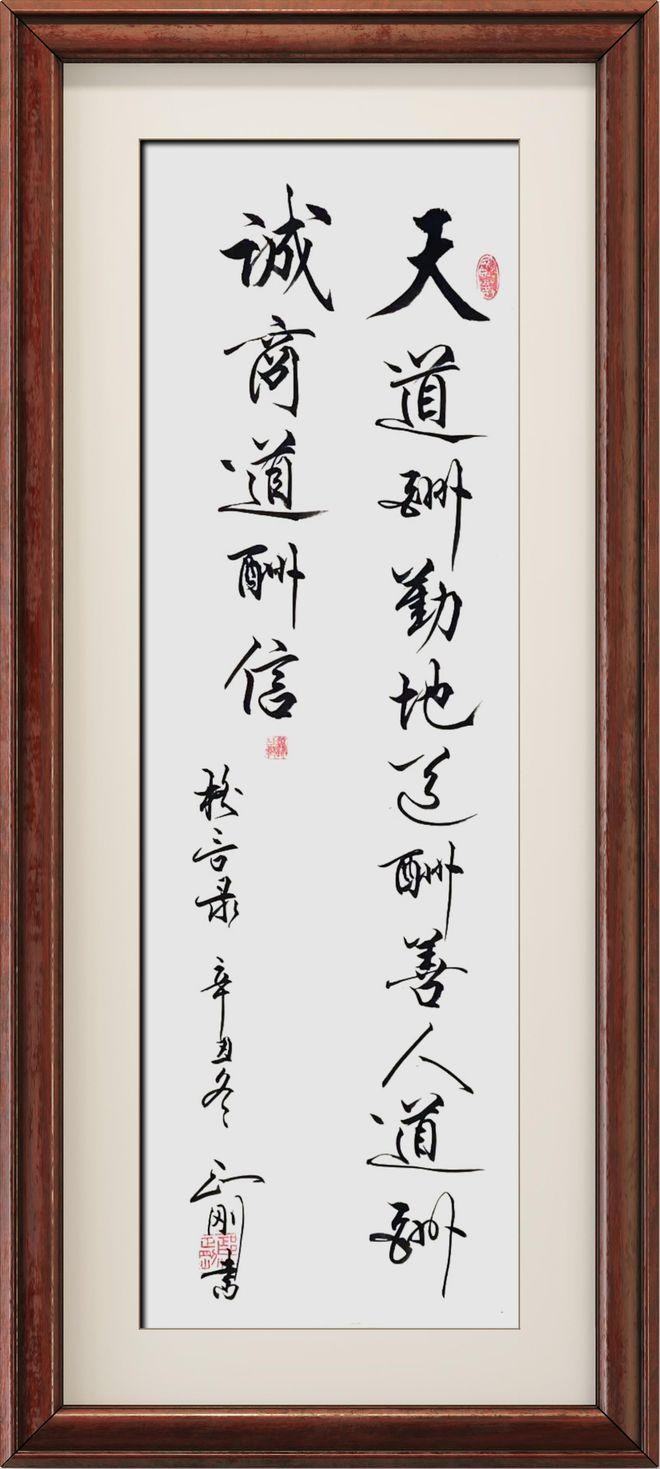 天道酬勤地道酬善人道酬
誠商道酬信
格言录 辛丑冬 正刚书